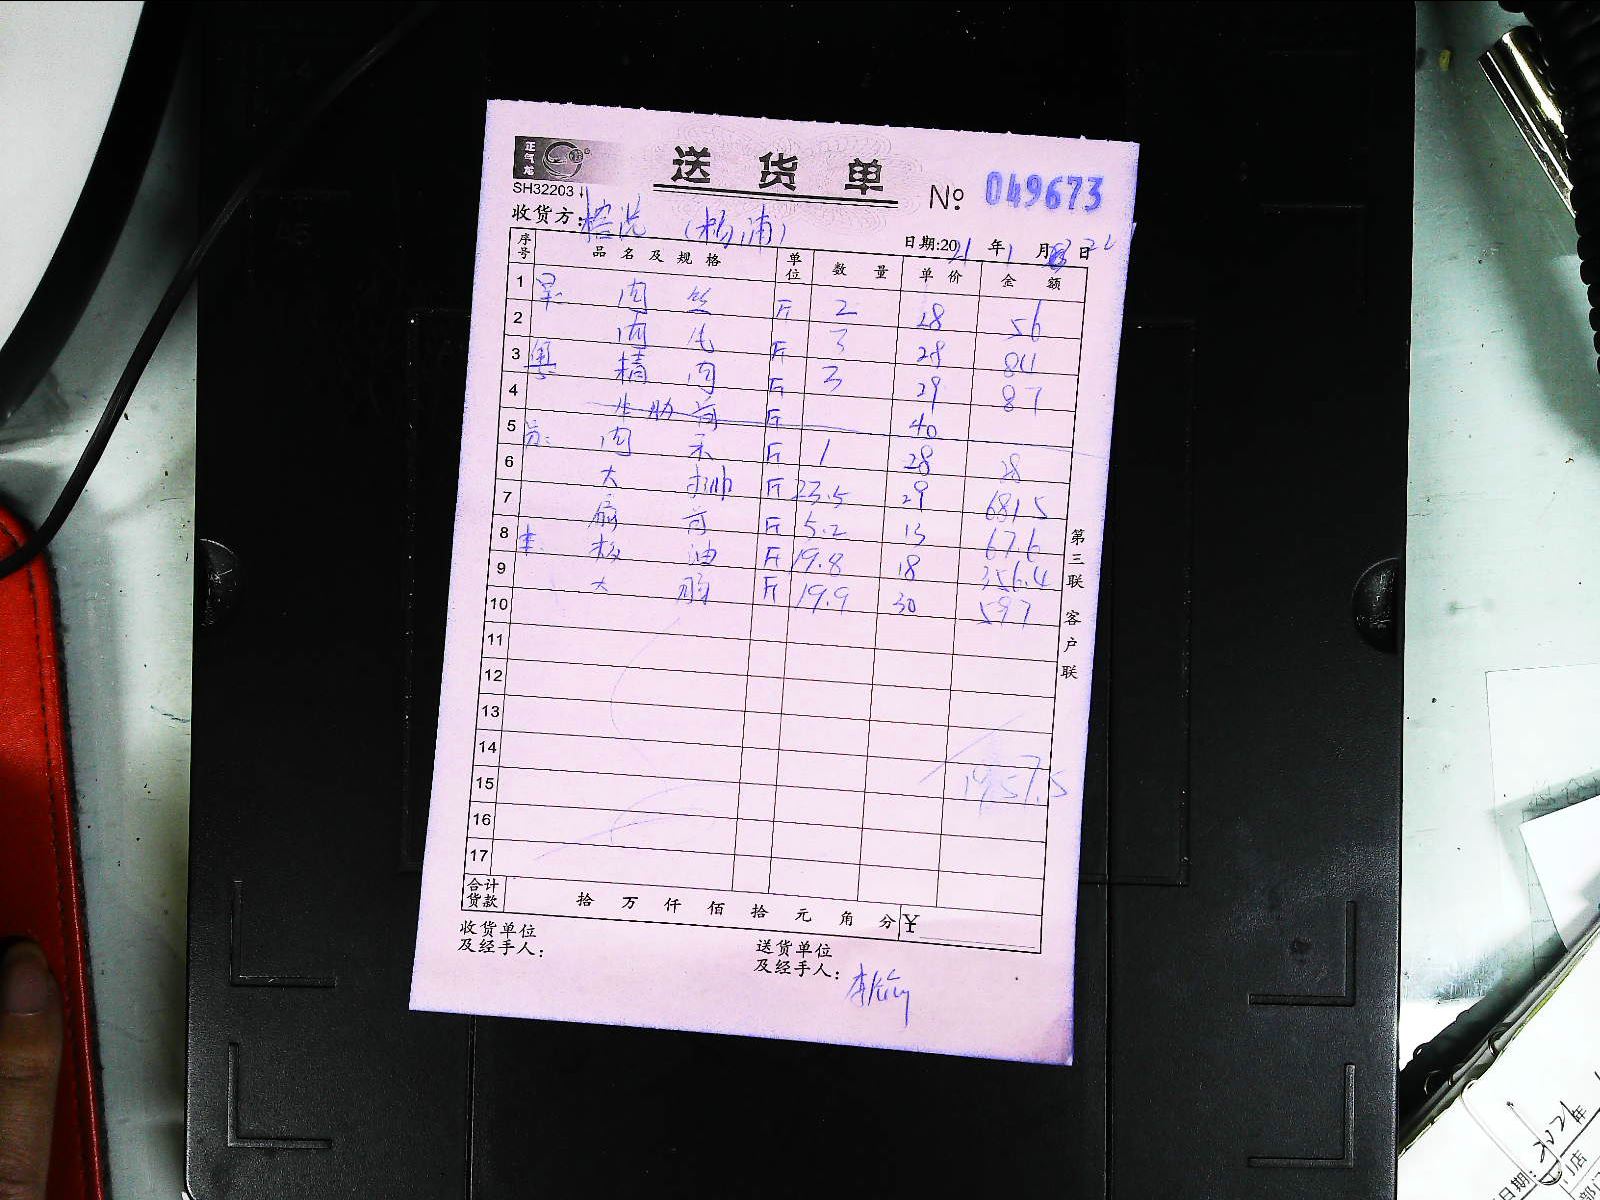 正气龙
送货单
SH32203
№ 049673
收货方: (杨浦)
日期:2021年1月22日
序号 品名及规格 单位 数量 单价 金额
1 肉丝 斤 2 28 56
2 肉 斤 3 28 84
3 精肉 斤 3 29 87
4 斤 40
5 肉 斤 1 28 28
6 大 斤 23.5 29 681.5
7 扇 斤 5.2 13 67.6
8 板油 斤 19.8 18 356.4
9 大 斤 19.9 30 597
10
11
12
13
14
15 1957.5
16
17
合计货款 拾万仟佰拾元角分 ¥
收货单位
及经手人:
送货单位
及经手人:
第三联 客户联
2021年
日期:
门店